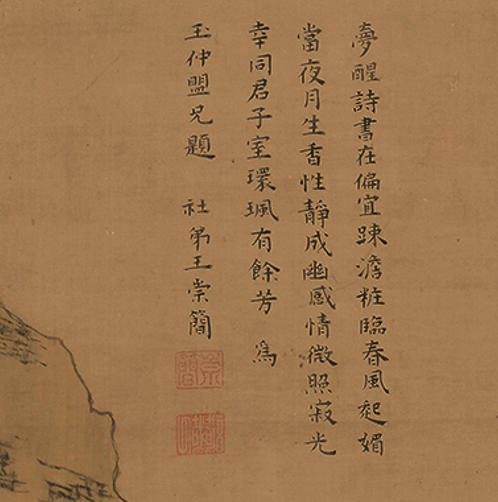 夢醒詩書在偏宜踈澹粧臨春風起媚
當夜月生香性靜成幽感情微照寂光
幸同君子室環珮有餘芳 為
玉仲盟兄題 社弟王崇簡